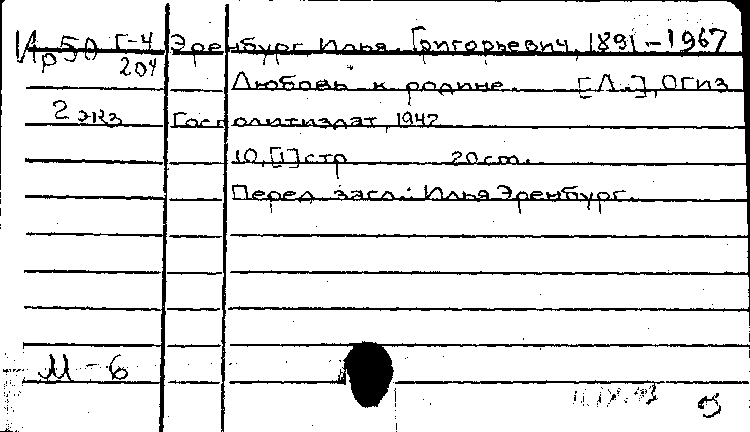 Ир50 Г-4 Эренбург, Илья Григорьевич, 1891-1967
204
Любовь к родине. [Л.], ОГИЗ
2 экз Госполитиздат, 1942
10,[1]стр 20см.
Перед загл.: Илья Эренбург.
М-6